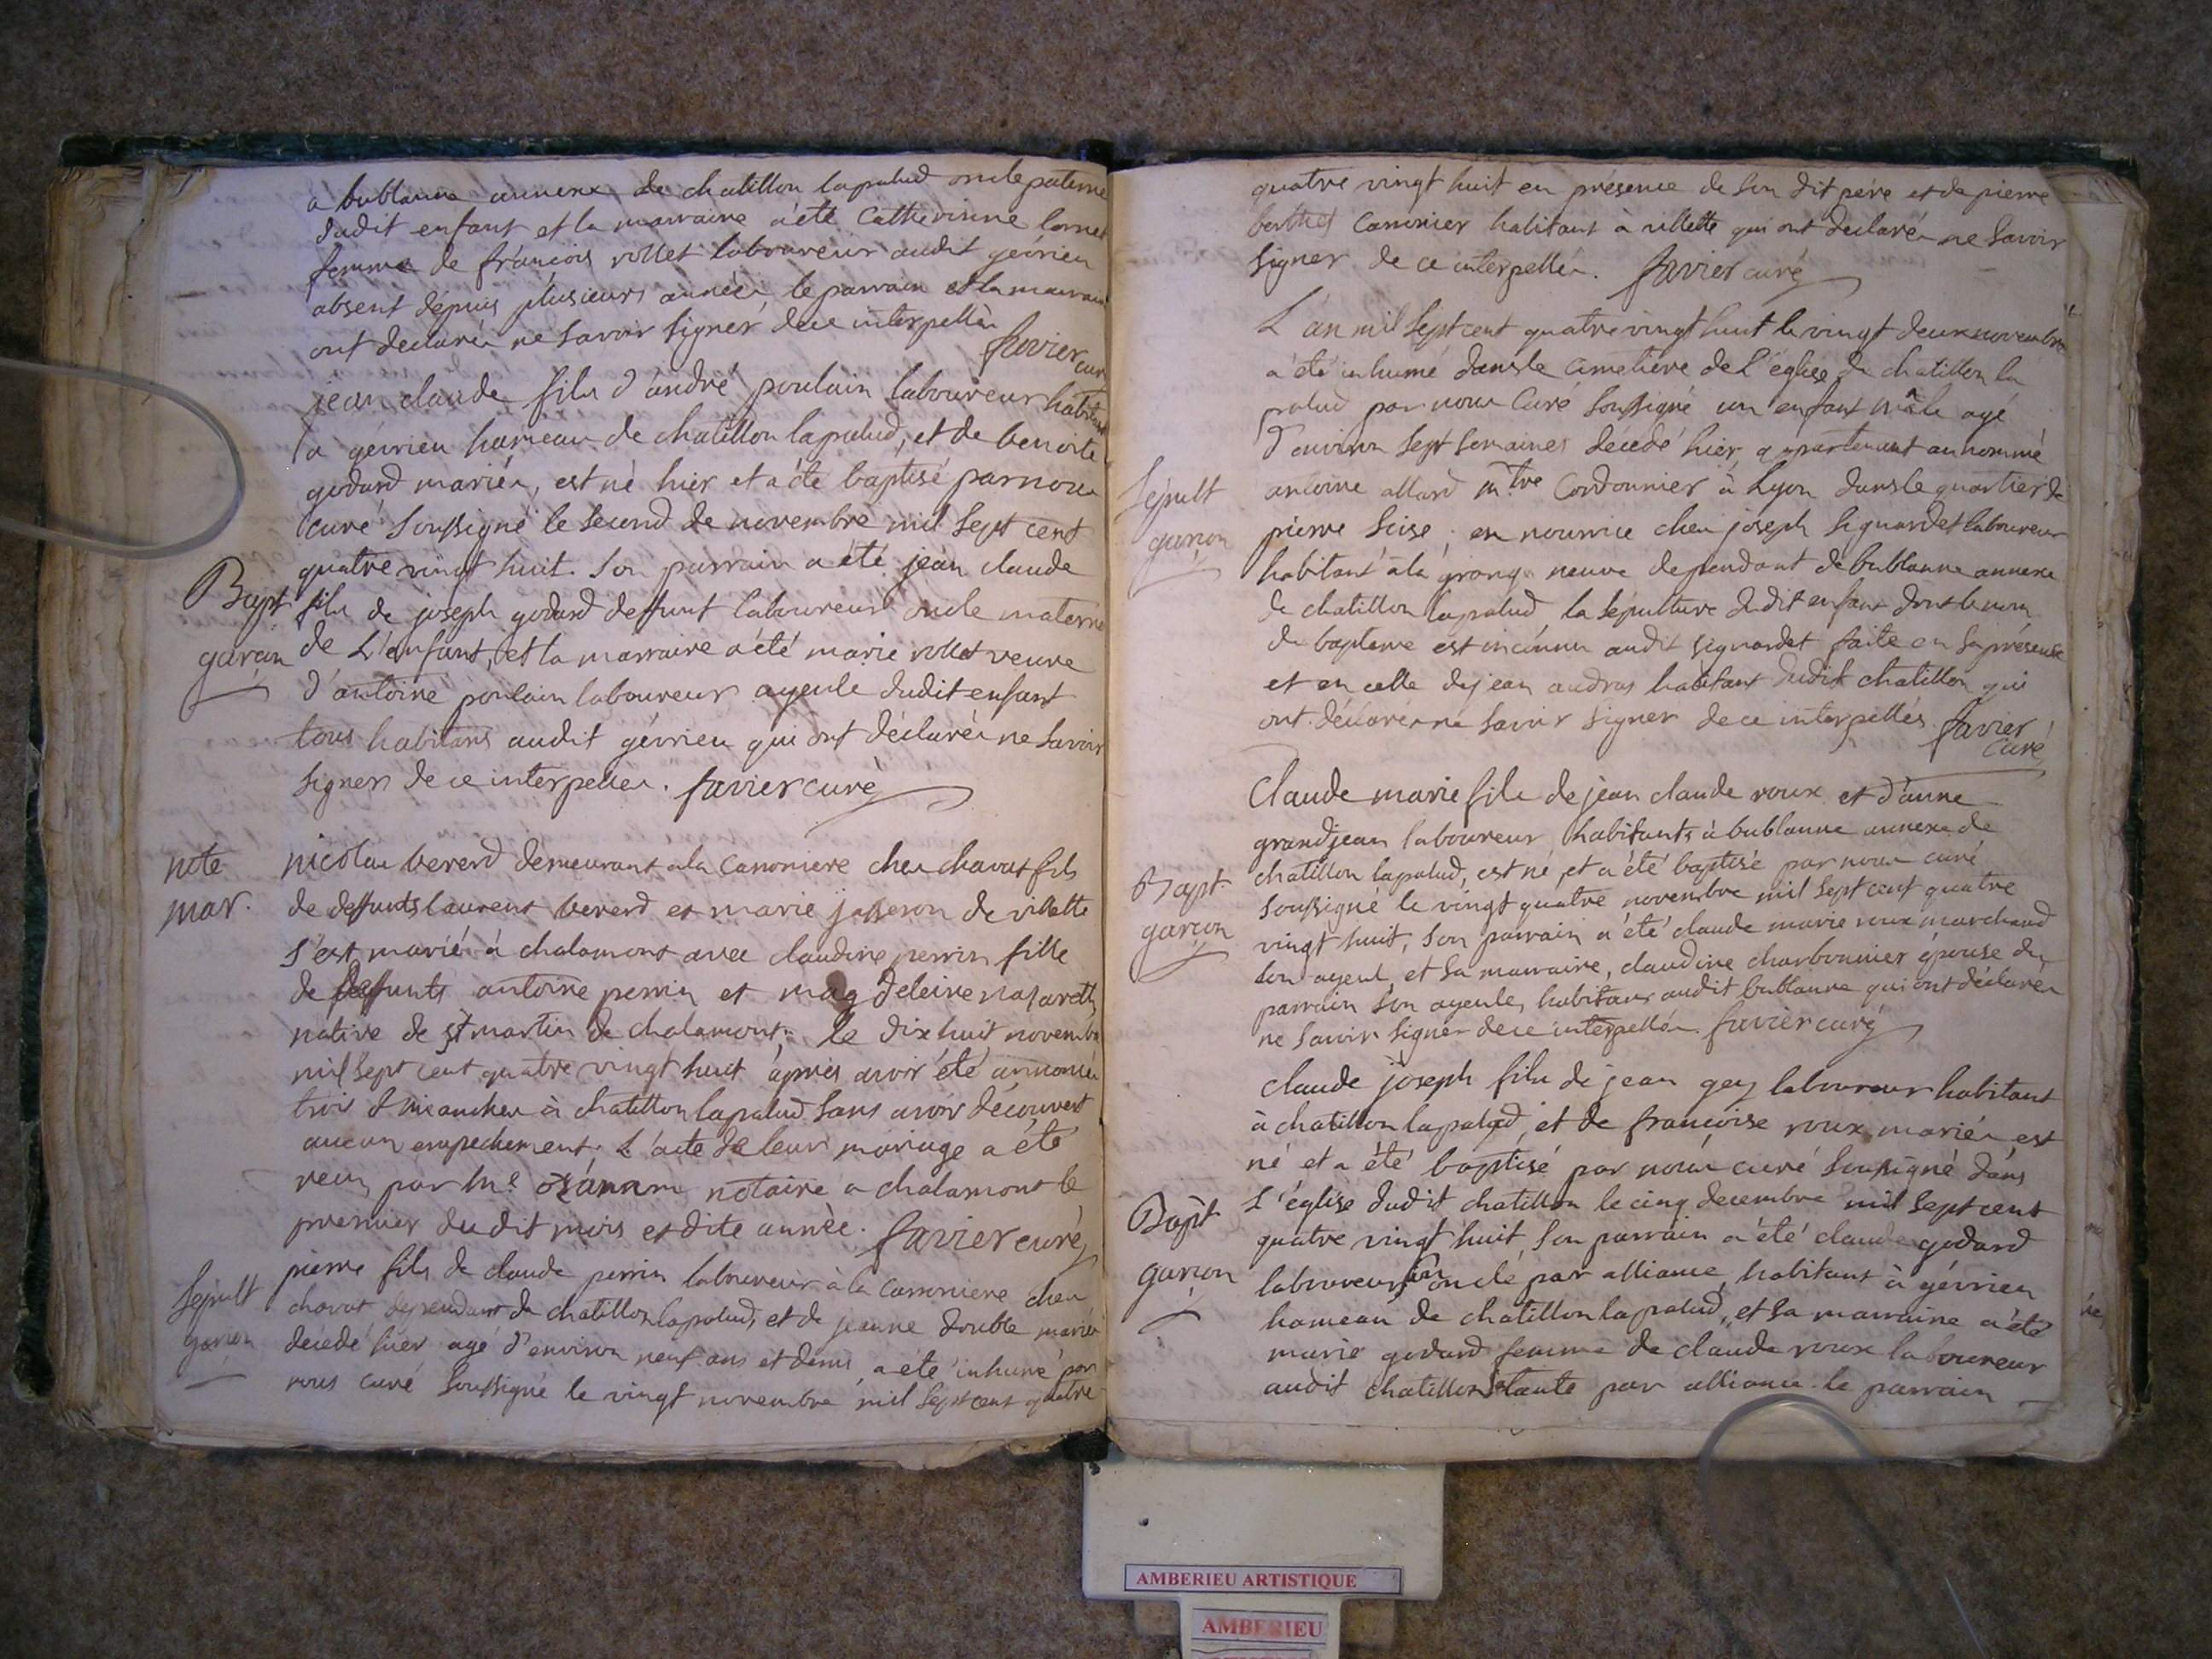 a bublanne annexe de chatillon lapalud oncle paterne
dudit enfant et la marraine a été Catherinne
femme de françois rollet laboureur audit gévrieu
absent depuis plusieurs années, le parrain et la marraine
ont declarés ne savoir signer de ce interpellés
favier curé
jean claude fils d'andré poulain laboureur habitant
a gévrieu hameau de chatillon lapalud, et de benoite
godard mariés, est né hier et a été baptisé par nous
curé soussigné le second de novembre mil sept cent
quatre vingt huit. son parrain a été jean claude
Bapt. fils de joseph godard deffunt laboureur oncle materne
garçon de L'enfant, et la marraine a été marie rollet veuve
d'antoine poulain laboureur ayeule dudit enfant
tous habitans audit gévrieu qui ont déclarés ne savoir
signer de ce interpellés. favier curé
note nicolas vererd demeurant a la Canoniere chez chavat fils
mar. de deffunts laurent vererd et marie josseron de villette
s'est marié à chalamont avec claudine perrin fille
de deffunts antoine perrin et magdeleine nazareth
native de st martin de chalamont, le dix huit novembre
mil sept cent quatre vingt huit après avoir été annoncés
trois dimanches à chatillon lapalud sans avoir découvert
aucun empechement. L'acte de leur mariage a été
recu par me notaire a chalamont le
premier du dit mois et dite année. favier curé
pierre fils de claude perrin laboureur à la Canoniere chez
Sepult chavat dependant de chatillon lapalud, et de jeanne double mariés
garçon décédé hier agé d'environ neuf ans et demi a été inhumé par
nous curé soussigné le vingt novembre mil sept cent quatre
quatre vingt huit en présence de son dit père et de pierre
berthet Canonier habitant à villette qui ont declarés ne savoir
signer de ce interpellés. favier curé
L'an mil sept cent quatre vingt huit le vingt deux novembre
a été inhumé dans le Cimetière de l'église de chatillon la
palud par nous Curé soussigné un enfant mâle agé
d'environ sept semaines décédé hier, appartenant au nommé
Sépult antoine allard mtre Cordonnier à Lyon dans le quartier de
garçon pierre scise, en nourrice chez joseph signardet laboureur
habitant à la grange neuve dependant de bublanne annexe
de chatillon lapalud, la sépulture dudit enfant dont le nom
de bapteme est inconnu audit signardet faite en sa présence
et en celle de jean audras habitant dudit chatillon qui
ont déclarés ne savoir signer de ce interpellés favier
curé
Claude marie fils de jean claude roux et d'anne
grandjean laboureur habitants à bublanne annexe de
Bapt. chatillon lapalud, est né, et a été baptisé par nous curé
soussigné le vingt quatre novembre mil sept cent quatre
garçon vingt huit, son parrain a été claude marie roux marchand
son ayeul, et sa marraine, claudine charbonnier épouse du
parrain son ayeule, habitans audit bublanne qui ont déclarés
ne savoir signer de ce interpellés. favier curé
claude joseph fils de jean gey laboureur habitant
à chatillon lapalud, et de francoise roux mariés est
né et a été baptisé par nous curé soussigné dans
Bapt L'église dudit chatillon le cinq decembre mil sept cent
quatre vingt huit, son parrain a été claude godard
garçon laboureur son oncle par alliance, habitant à gévrieu
hameau de chatillon lapalud, et sa marraine a été
marie godard femme de claude roux laboureur
audit chatillon sa tante par alliance. le parrain
AMBERIEU ARTISTIQUE
AMBERIEU